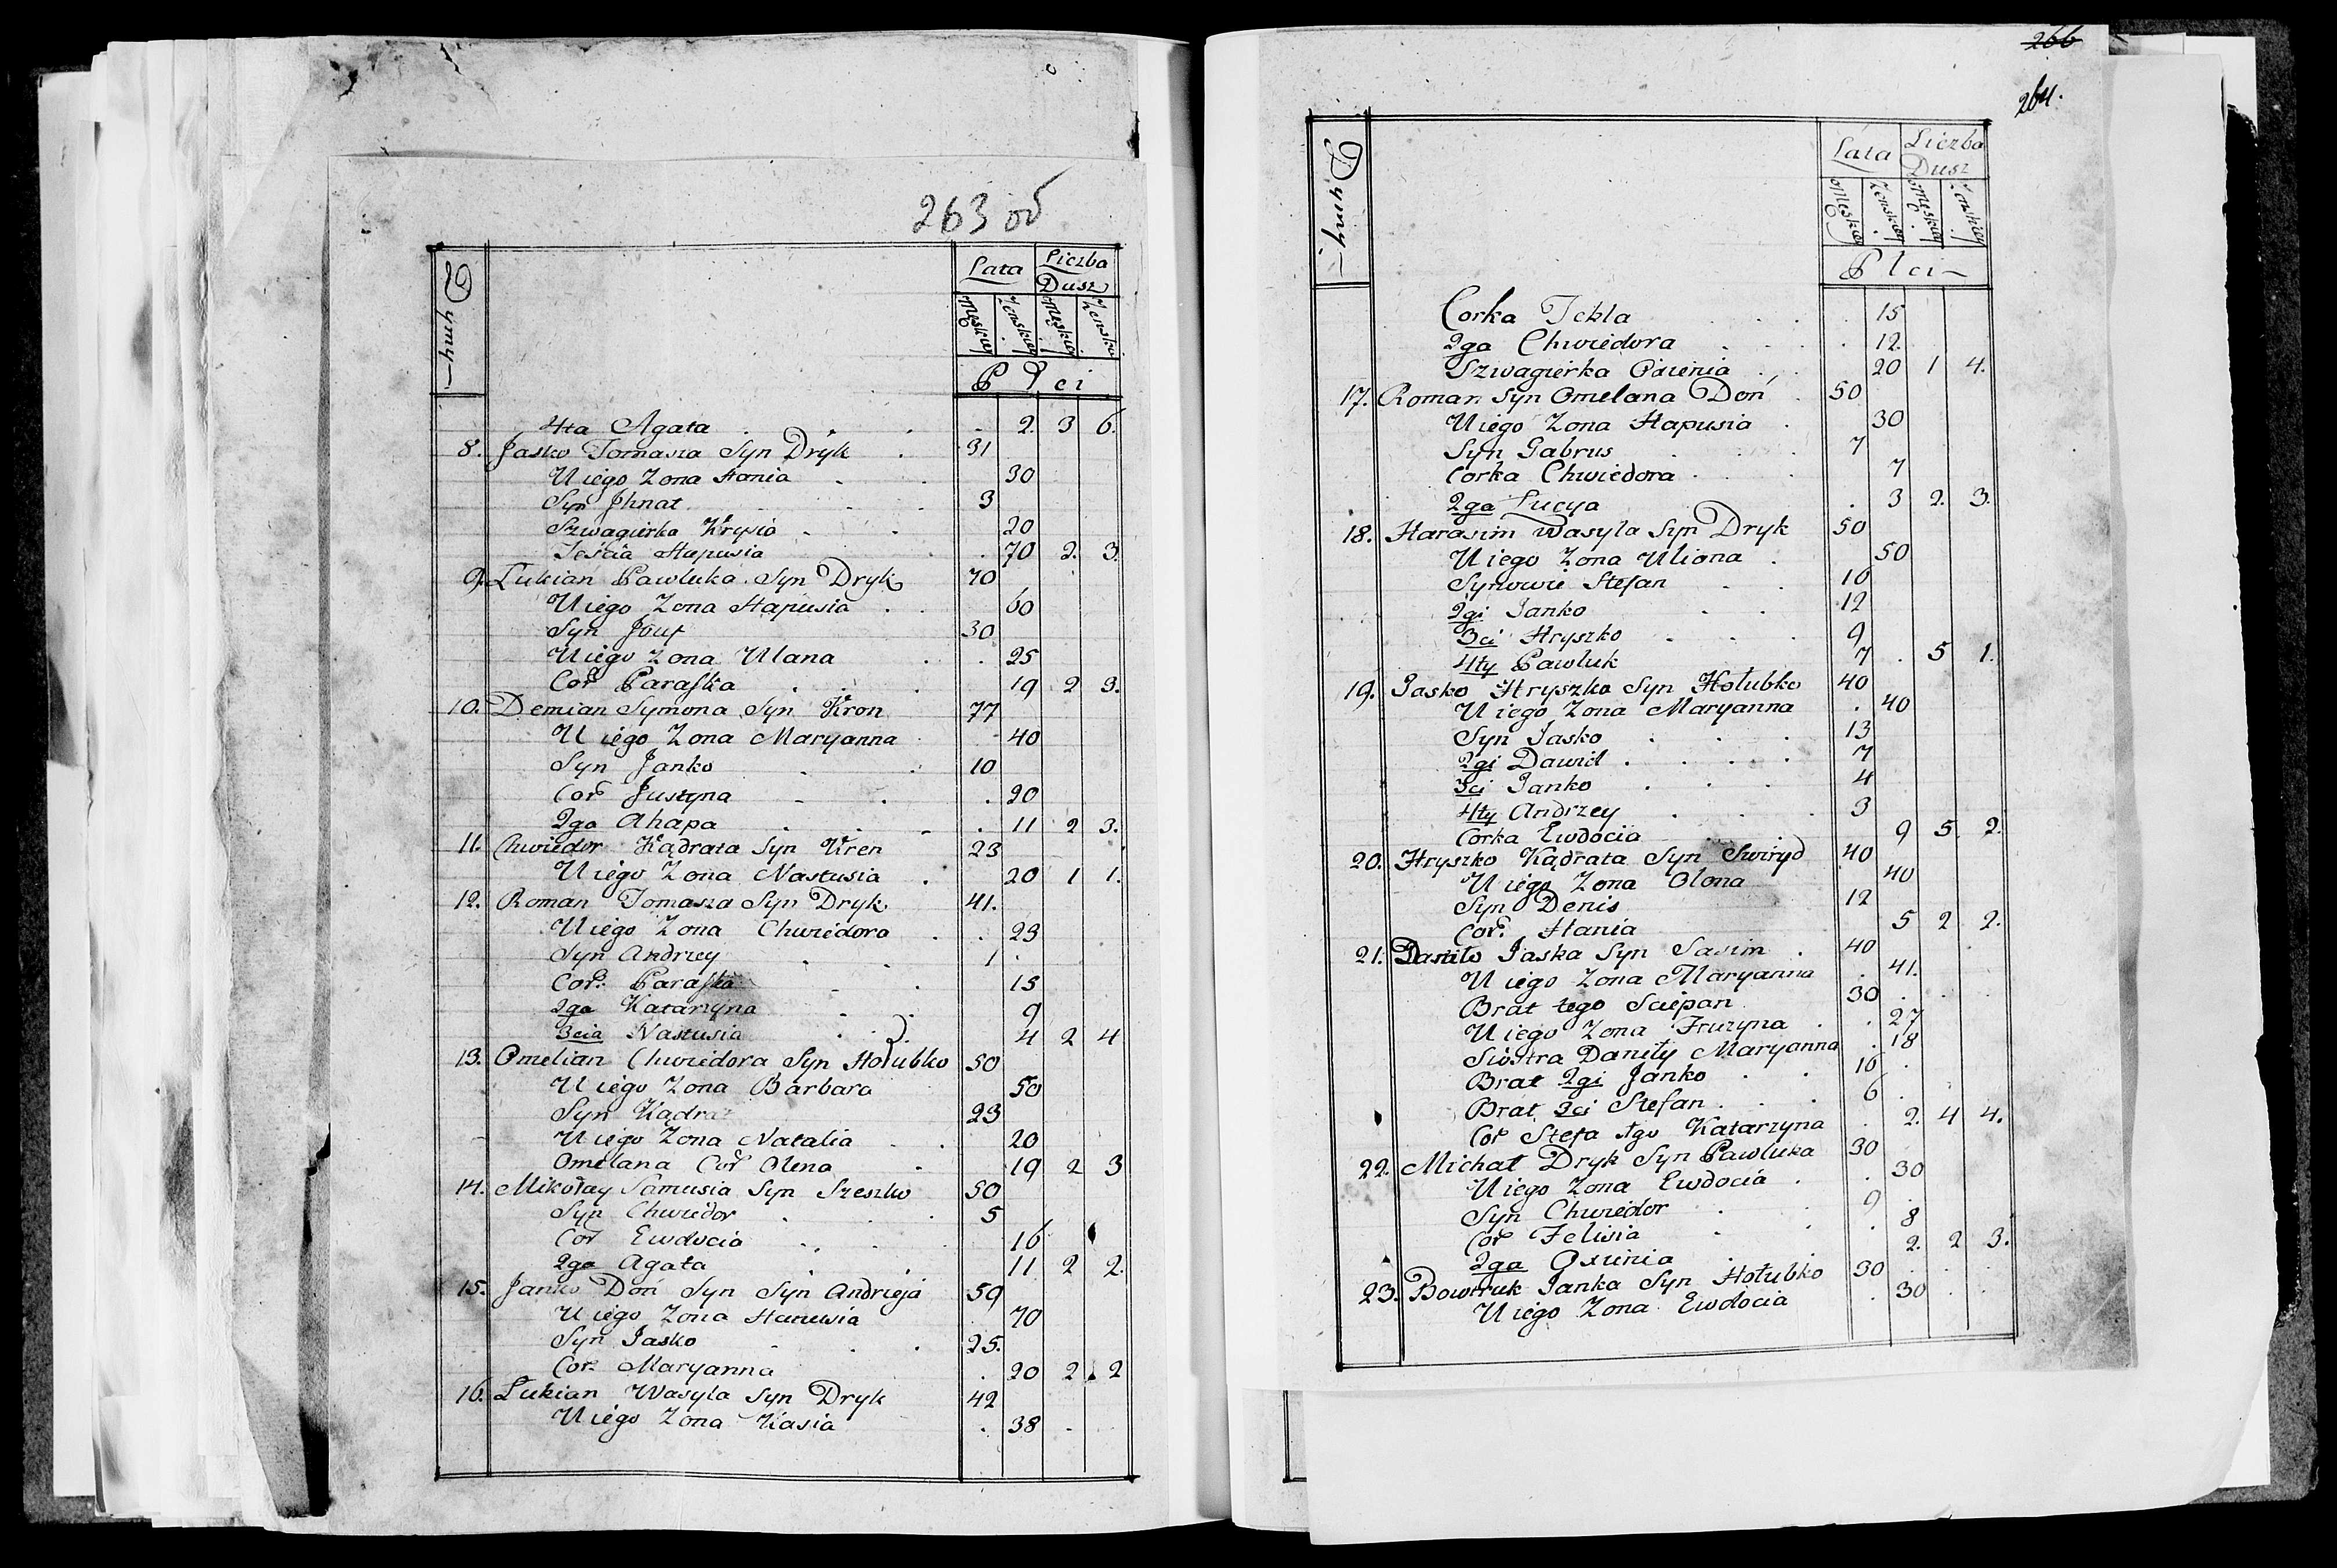 263 об
Dymy
Lata Liczba Dusz
Męskiey Zenskiey Męskiey Zenskiey
Płci
4ta Agata 2. 3 6.
8. Jasko Tomasza Syn Dryk 31
U iego Zona Hania 30
Syn Jhnat 3
Szwagierka Krysia 20
Teścia Hapusia 70 2. 3.
9. Lukian Pawluka Syn Dryk 70
U iego Zona Hapusia 60
Syn Jouf 30
U iego Zona Ulana 25
Cor Paraska 19 2 3.
10. Demian Symona Syn Kron 77
U iego Zona Maryanna 40
Syn Janko 10
Cor Justyna 20
2ga Ahapa 11 2 3.
11. Chwiedor Kądrata Syn Kren 23
U iego Zona Nastusia 20 1 1.
12. Roman Tomasza Syn Dryk 41.
U iego Zona Chwiedora 23
Syn Andrzey 1
Cor: Paraska 15
2ga Katarzyna 9
3cia Nastusia 4 2 4
13. Omelian Chwiedora Syn Hołubko 50
U iego Zona Barbara 50
Syn Kądra 23
U iego Zona Natalia 20
Omelana Cor Olena 19 2 3
14. Mikołay Samusia Syn Szeszko 50
Syn Chwiedor 5
Cor Ewdocia 16
2ga Agata 11 2 2.
15. Janko Doń Syn Syn Andrieja 59
U iego Zona 70
Syn Jasko 25.
Cor: Maryanna 20 2. 2
16. Lukian Wasyla Syn Dryk 42
U iego Zona Kasia 38
266
264.
Dymy
Lata Liczba Dusz
Męskiey Zenskiey Męskiey Zenskiey
Płci
Corka Tekla 15
2ga Chwiedora 12.
Szwagierka Oxienia 20 1 4.
17. Roman Syn Omelana Doń 50
U iego Zona Hapusia 30
Syn Gabrus 7
Corka Chwiedora 7
2ga Lucya 3 2. 3.
18. Harasim Wasyla Syn Dryk 50
U iego Zona Uliona 50
Synowie Stefan 16
2gi Janko 12
3ci Hryszko 9
4ty Pawluk 7 5 1.
19. Jasko Hryszka Syn Hołubko 40
U iego Zona Maryanna 40
Syn Jasko 13
2gi Dawid 7
3ci Janko 4
4ty Andrzey 3
Corka Ewdocia 9 5 2.
20. Hryszko Kądrata Syn Swiryd 40
U iego Zona Olona 40
Syn Denis 12
Cor: Hania 5 2 2.
21. Daniło Jaska Syn Sasim 40
U iego Zona Maryanna 41.
Brat tego Sciepan 30
U iego Zona Fruzyna 27
Siostra Daniły Maryanna 18
Brat 2gi Janko 16
Brat 3ci Stefan 6
Cor Katarzyna 2. 4 4.
22. Michał Dryk Syn Pawluka 30
U iego Zona Ewdocia 30
Syn Chwiedor 9
Cor Felisia 8
2ga Oxinia 2. 2 3.
23. Janka Syn Hołubko 30
U iego Zona Ewdocia 30